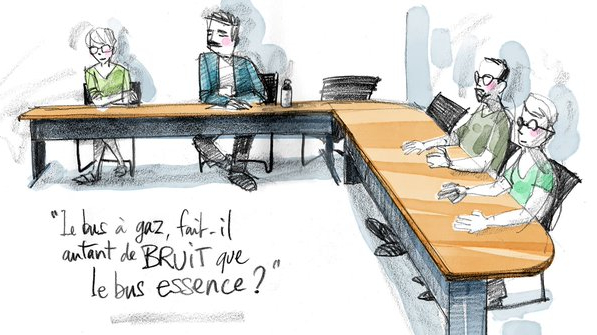 "Le bus à gaz, fait-il
autant de BRUIT que
le bus essence ?"